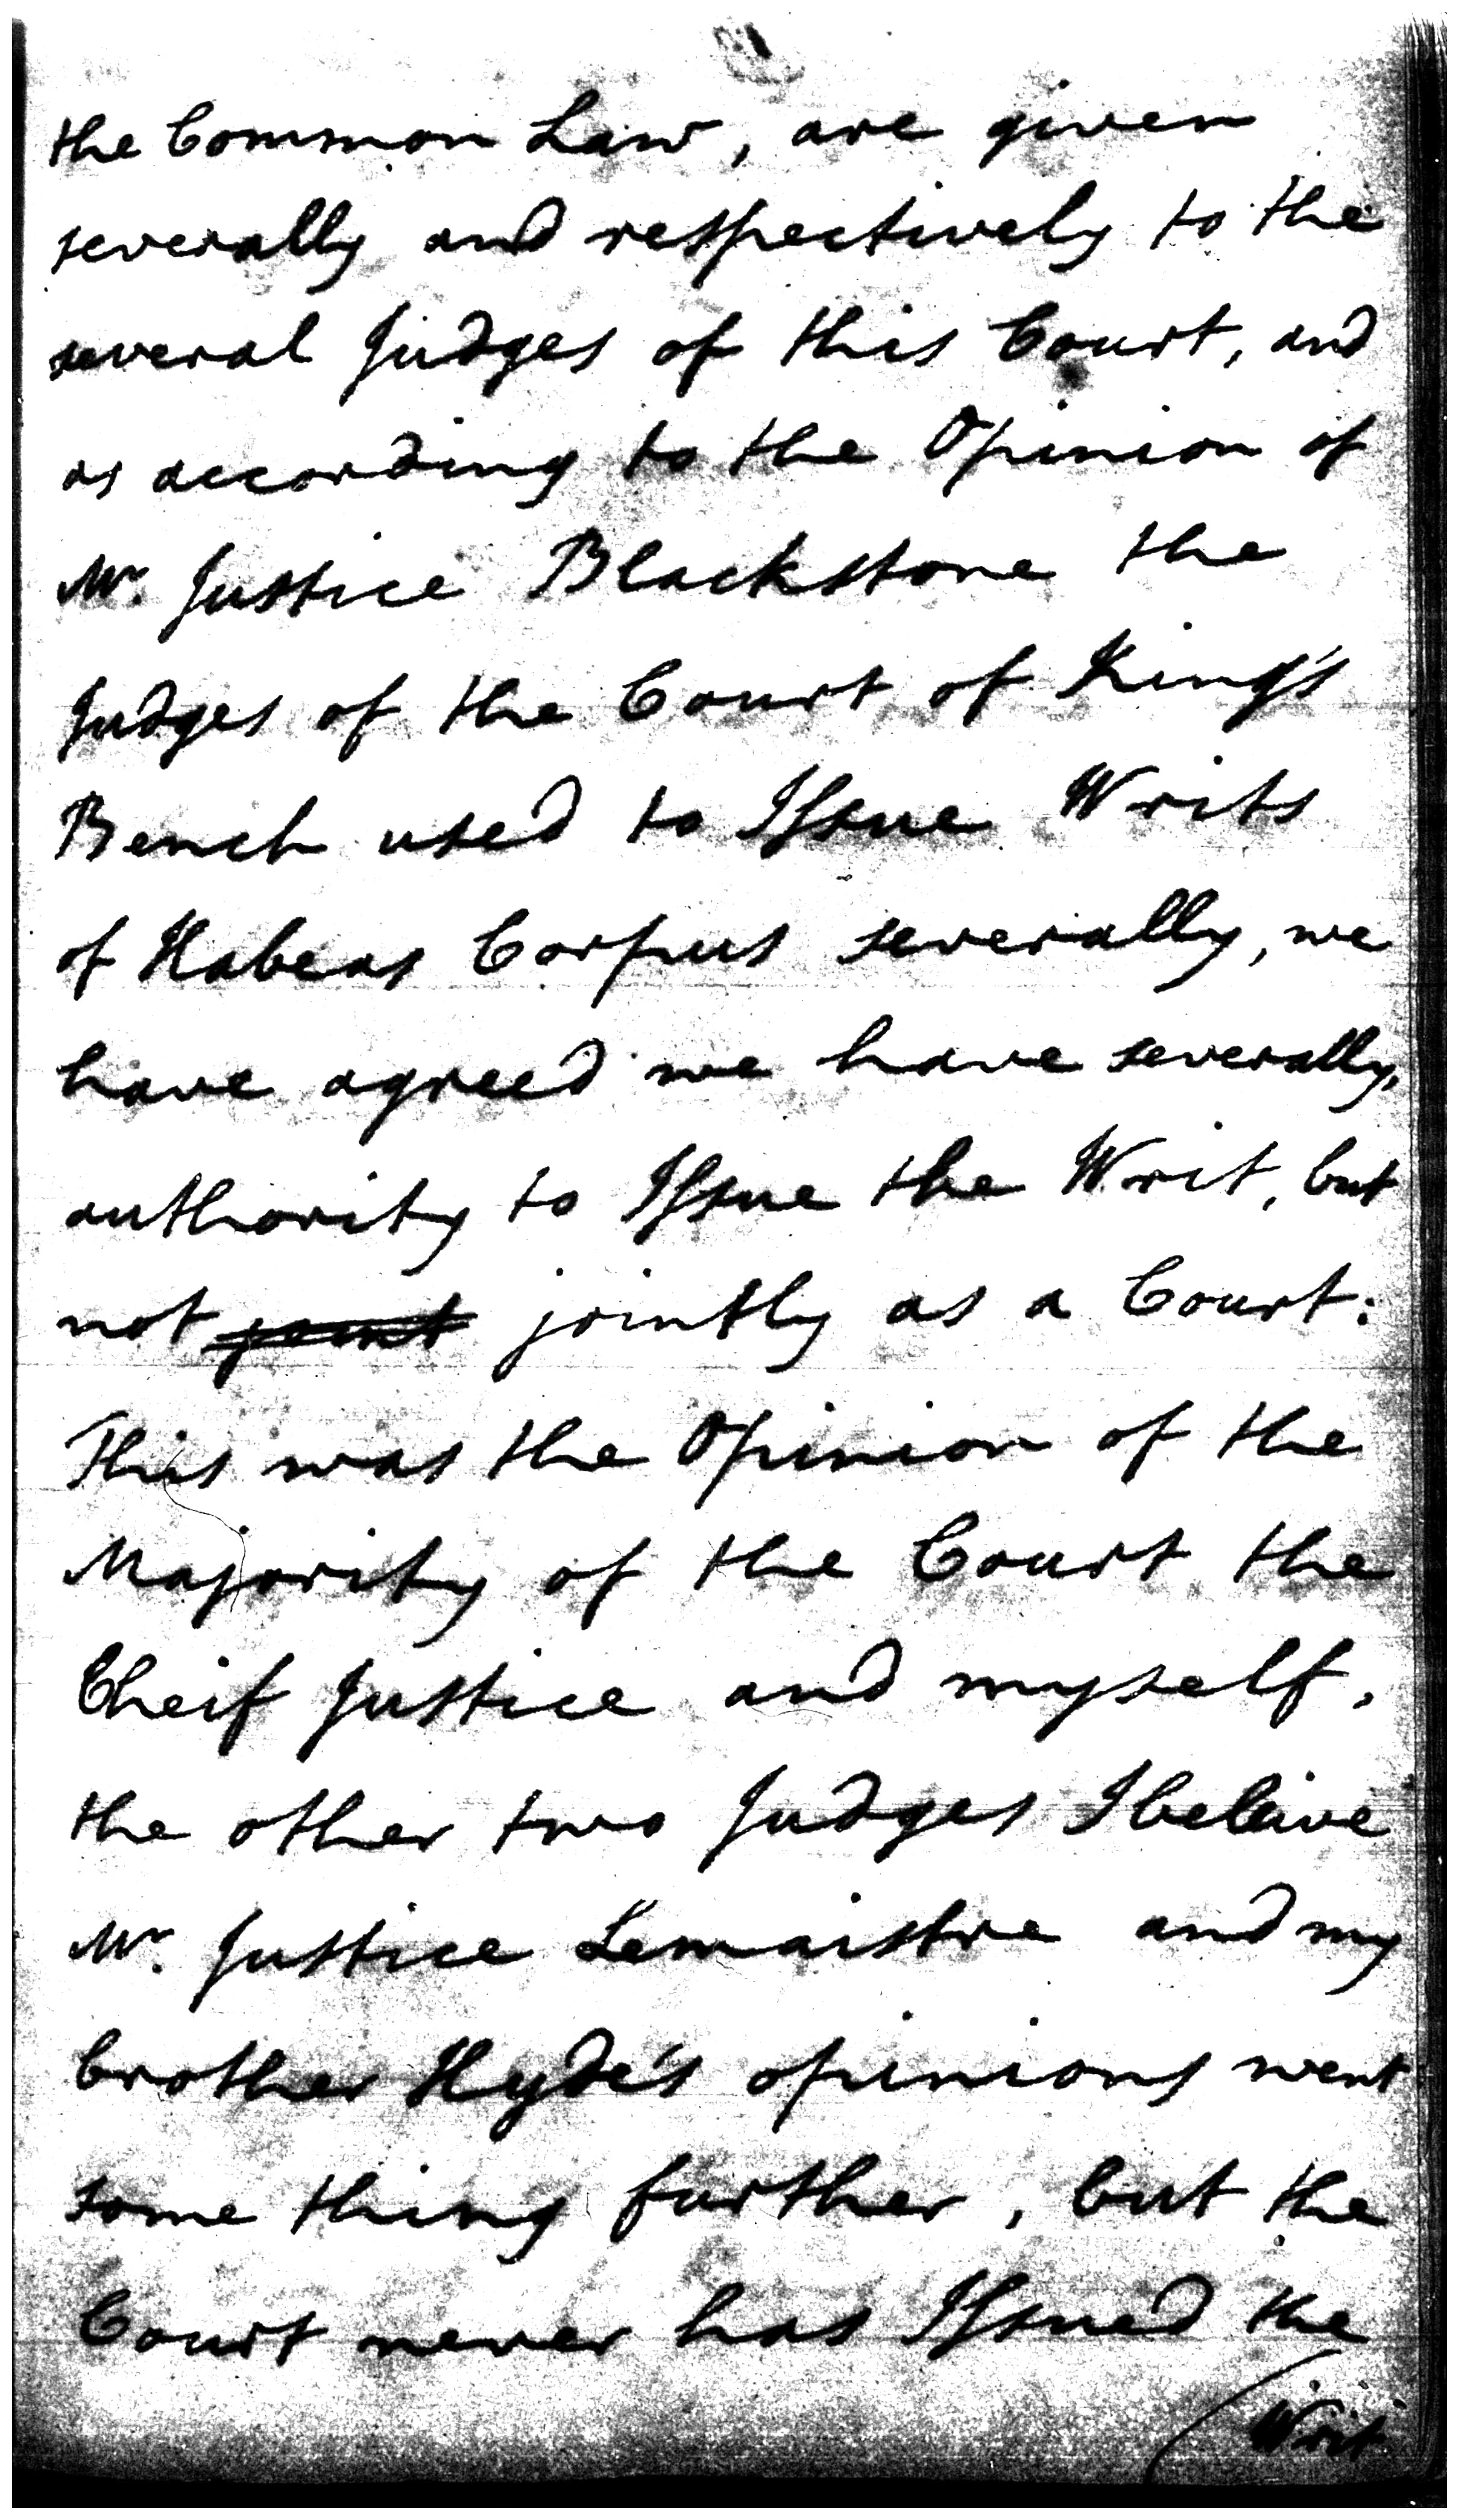 the Common Law, are given
severally and respectively to the
several Judges of this Court, and
as according to the Opinion of
Mr. Justice Blackstone the
Judges of the Court of King's
Bench used to Issue Writs
of Habeas Corpus severally, we
have agreed we have severally,
authority to Issue the Writ, but
not joint jointly as a Court:
This was the Opinion of the
Majority of the Court the
Cheif Justice and myself,
the other two Judges I beleive
Mr. Justice Lemaistre and my
brother Hyde's opinions went
some thing further, but the
Court never has Issued the
Writ